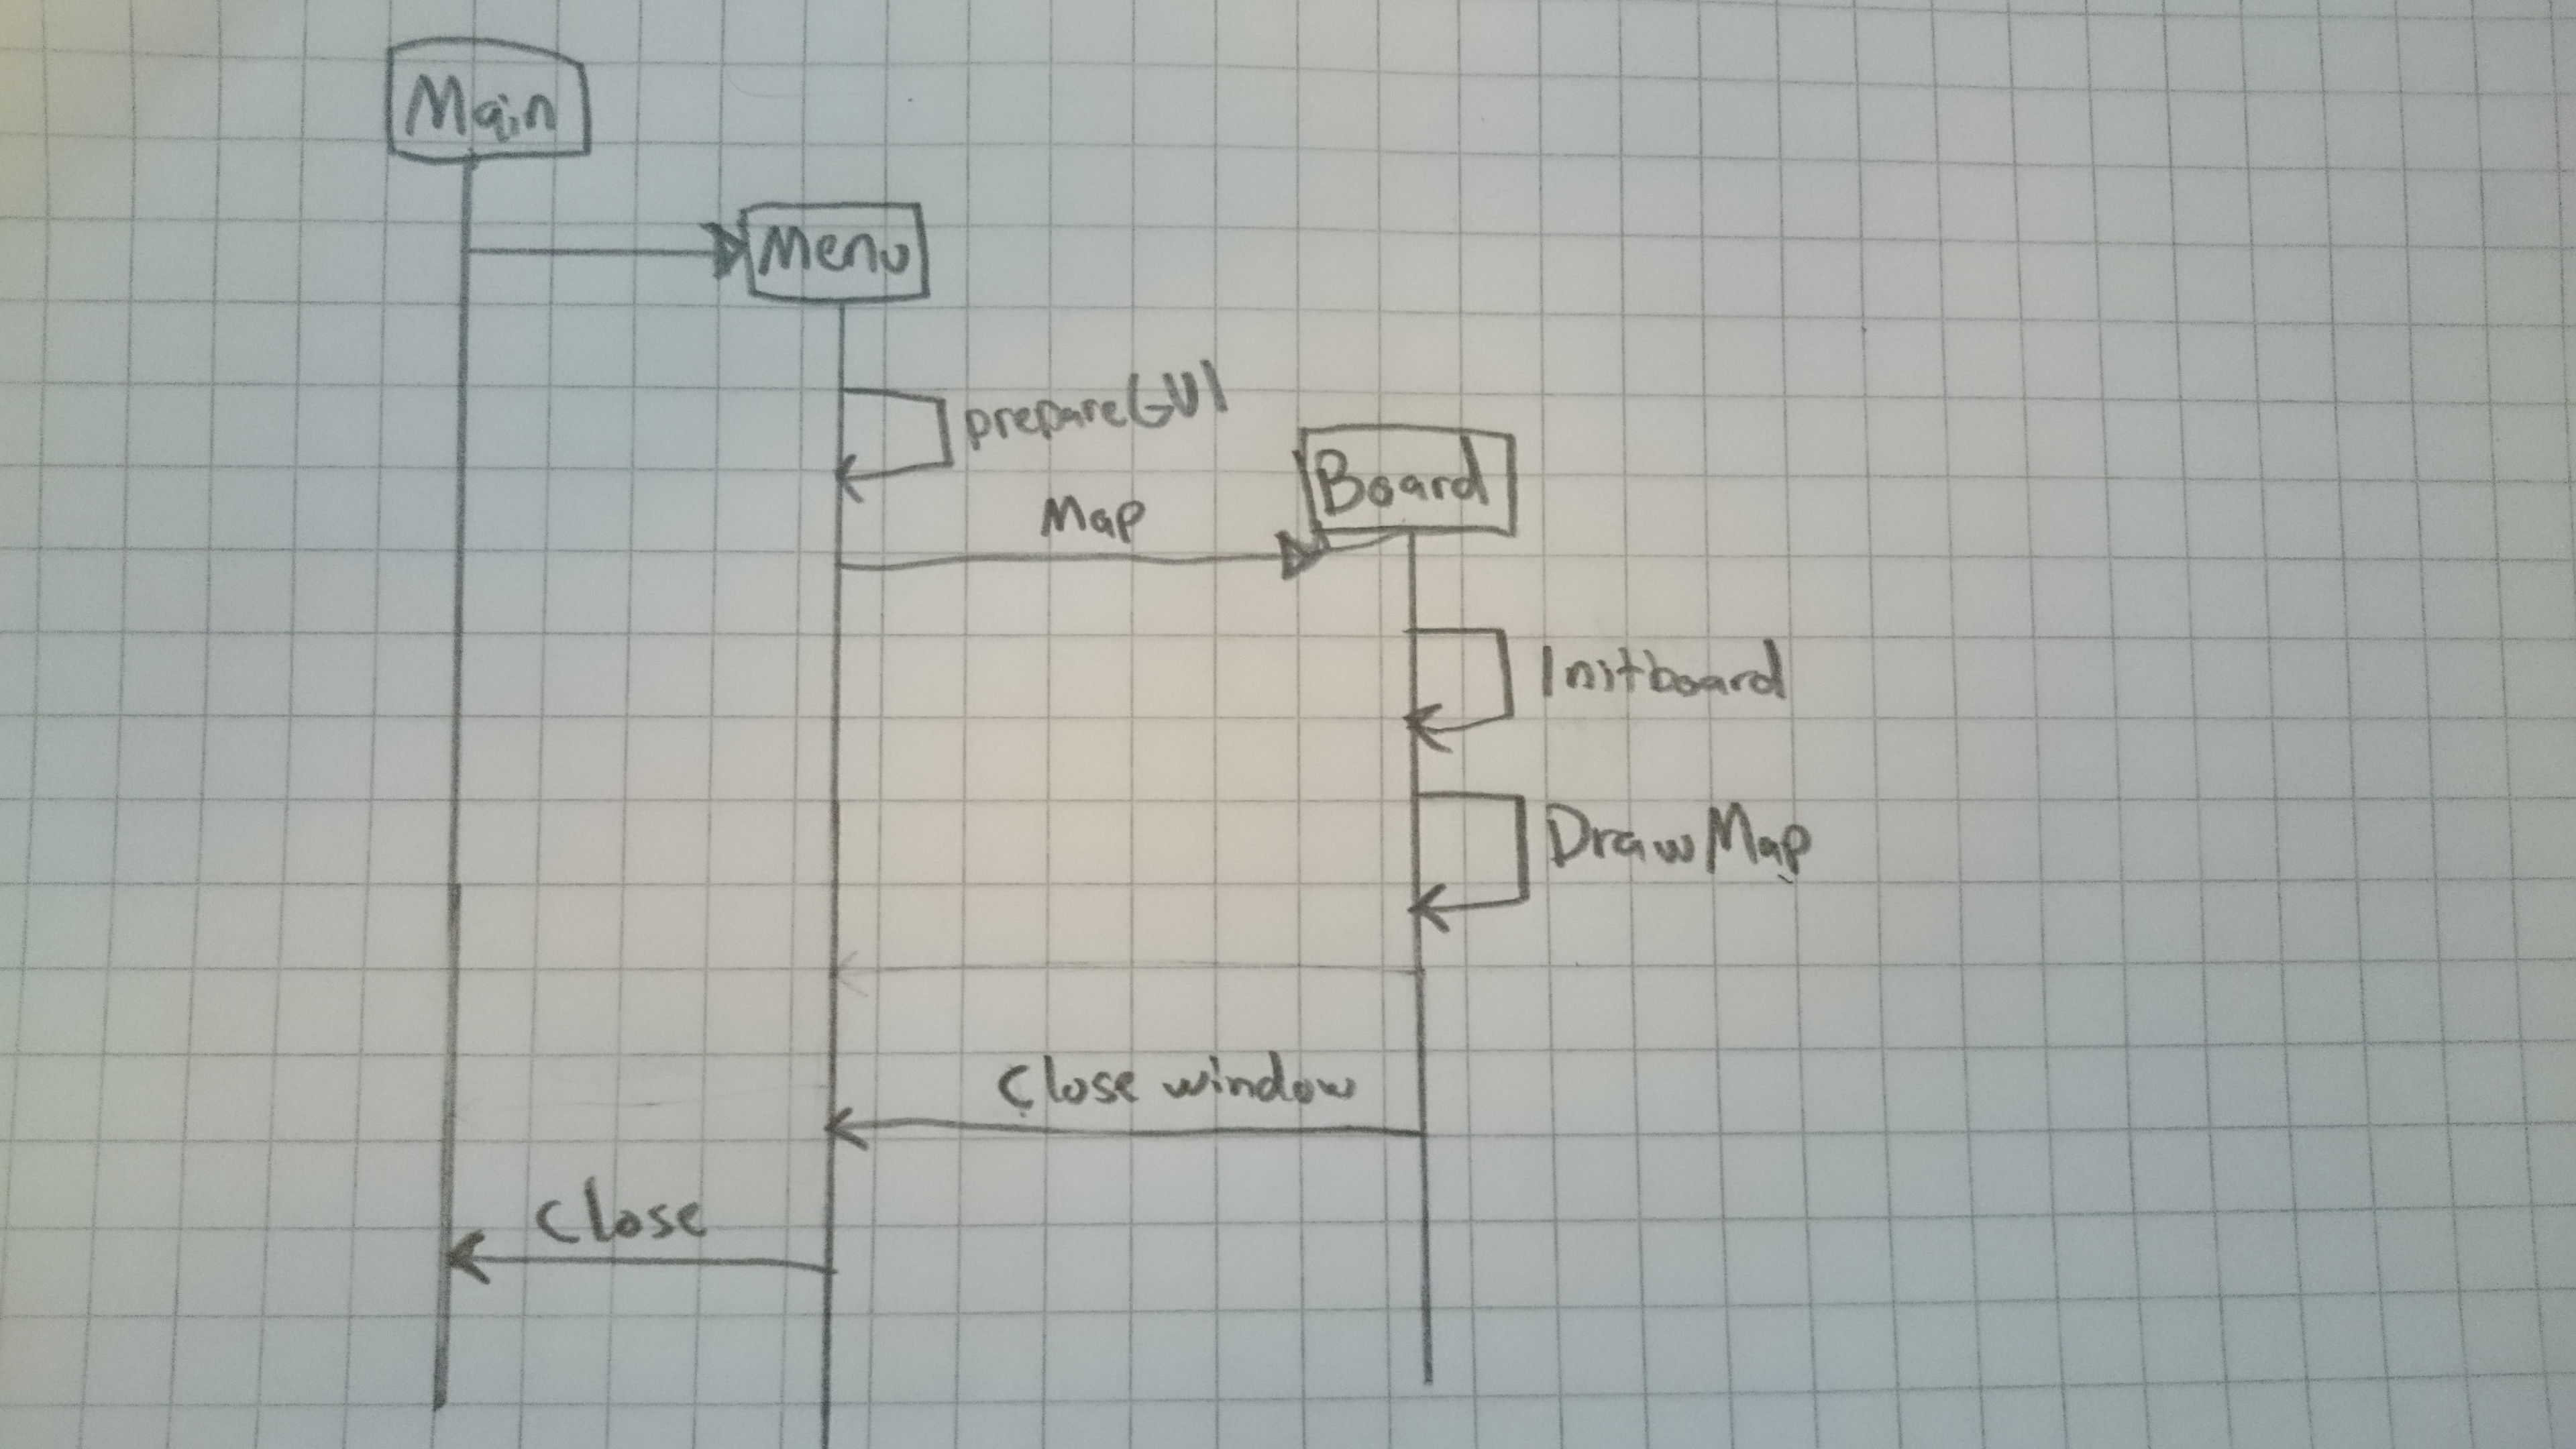 Main
Menu
prepareGUI
Board
Map
Initboard
DrawMap
Close window
Close